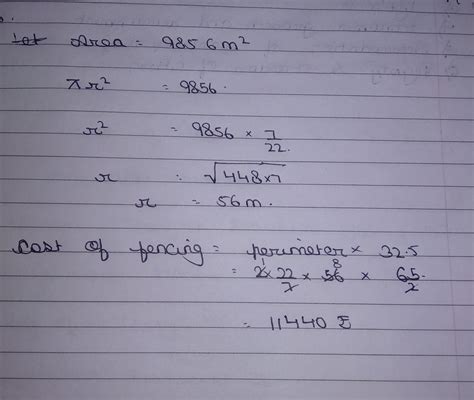 Let Area = 9856m²
πr² = 9856.
r² = 9856 × 7/22.
r = √448×7
r = 56m.
Cost of fencing = perimeter × 32.5
= 2 × 22/7 × 56 8 × 65/2.
= 11440 ₹